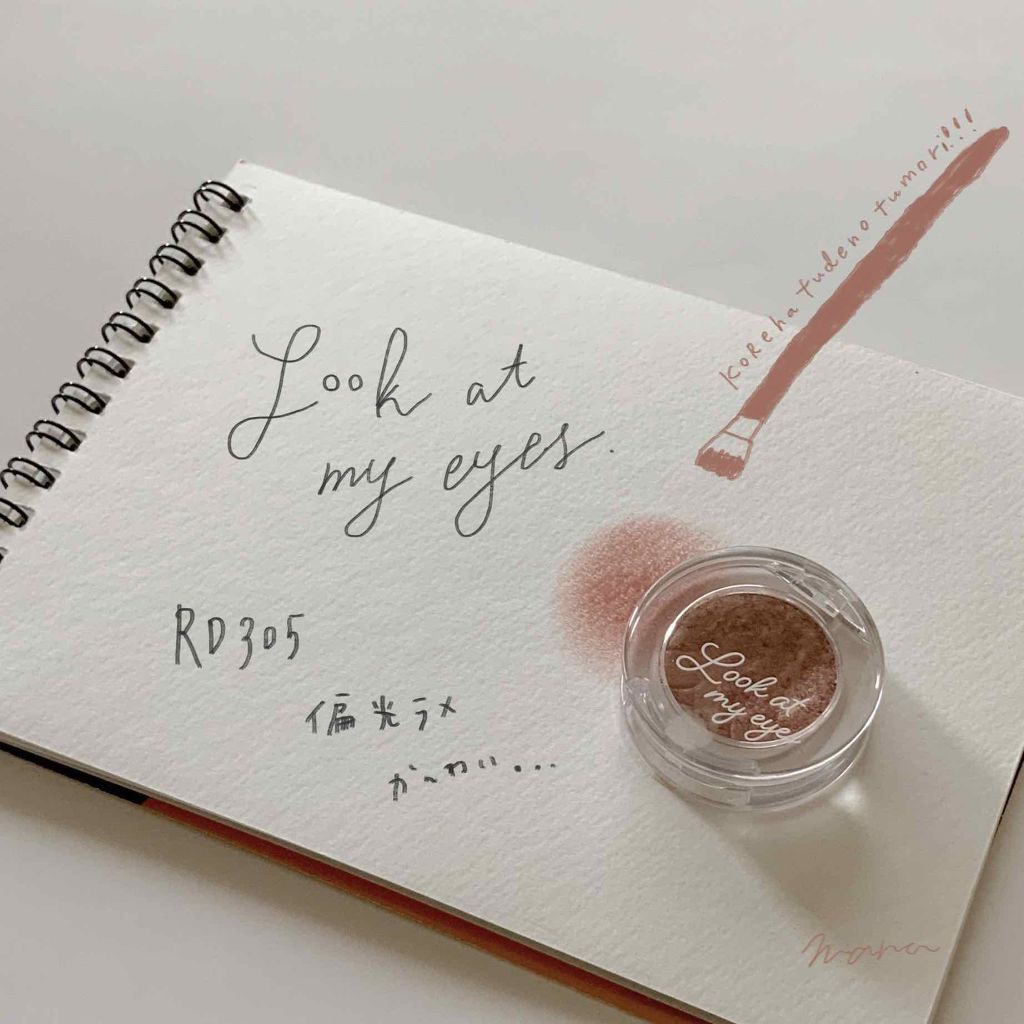 Koreha tudeno tumori!!!
Look at
my eyes.
RD305
偏光ラメ
か〜わい...
Look at
my eye
mana